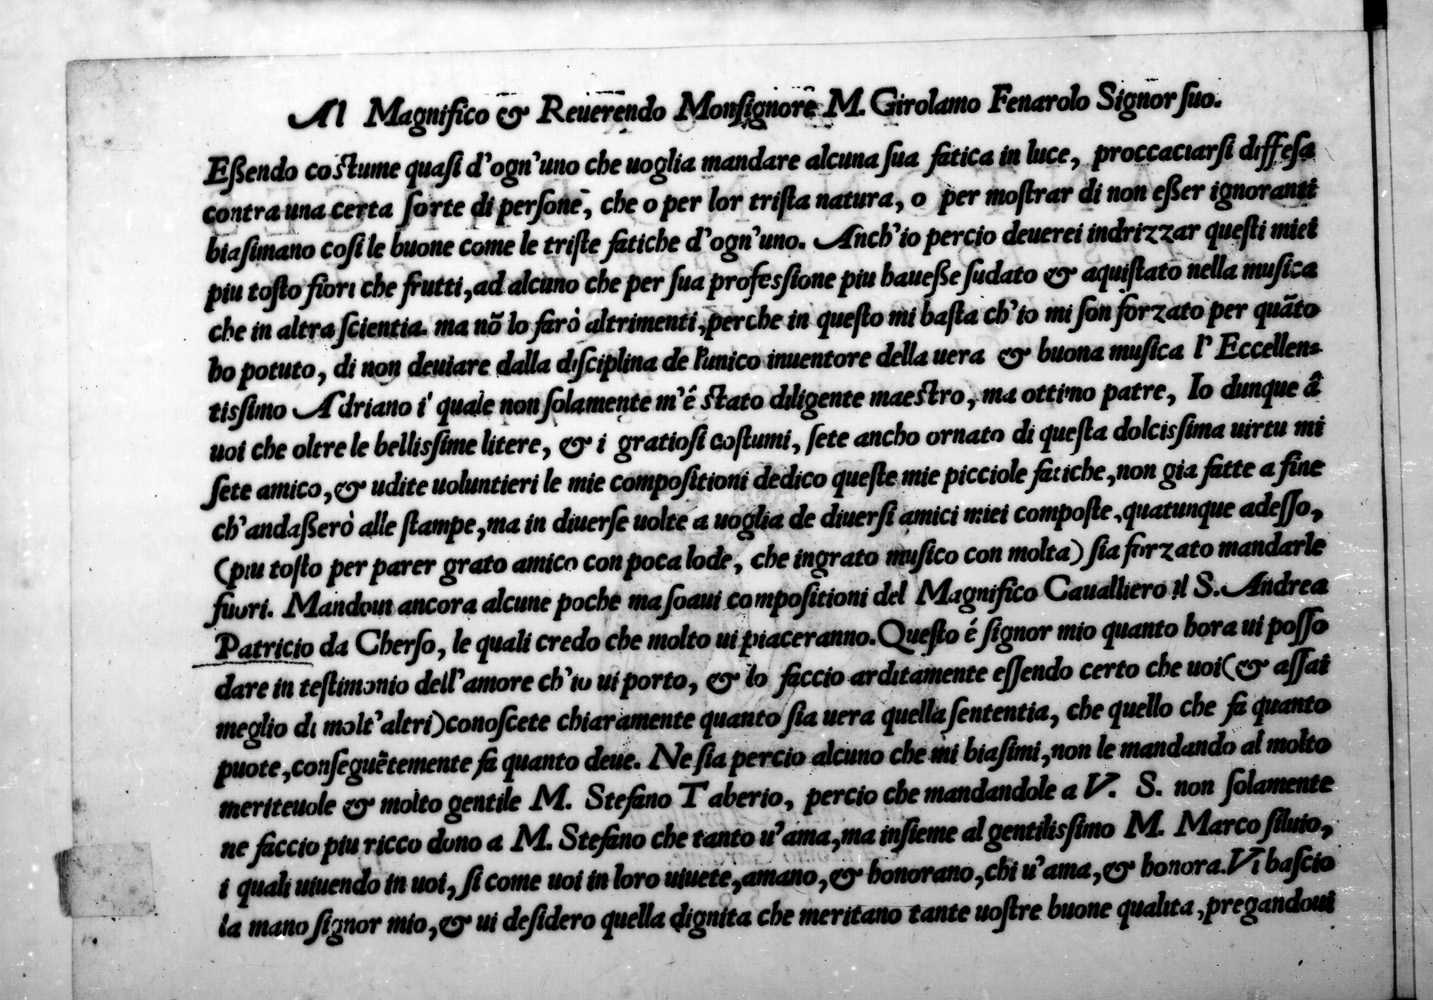 Al Magnifico & Reuerendo Monsignore M. Girolamo Fenarolo Signor suo.
Eßendo costume quasi d'ogn'uno che uoglia mandare alcuna sua fatica in luce, proccaciarsi diffesa
contra una certa sorte di persone, che o per lor trista natura, o per mostrar di non eßer ignoranti
biasimano cosi le buone come le triste fatiche d'ogn'uno. Anch'io percio deuerei indrizzar questi miei
piu tosto fiori che frutti, ad alcuno che per sua professione piu haueße sudato & aquistato nella musica
che in altra scientia. ma nõ lo farò altrimenti, perche in questo mi basta ch'io mi son forzato per quãto
ho potuto, di non deuiare dalla disciplina de l'unico inuentore della uera & buona musica l'Eccellen=
tissimo Adriano i' quale non solamente m'é stato diligente maestro, ma ottimo patre, Io dunque â
uoi che oltre le bellissime litere, & i gratiosi costumi, sete ancho ornato di questa dolcissima uirtu mi
sete amico, & udite uoluntieri le mie compositioni dedico queste mie picciole fatiche, non gia fatte a fine
ch'andaßerò alle stampe, ma in diuerse uolte a uoglia de diuersi amici miei composte, quatunque adesso,
(piu tosto per parer grato amico con poca lode, che ingrato musico con molta) sia forzato mandarle
fuori. Mandoui ancora alcune poche ma soaui compositioni del Magnifico Caualliero il S. Andrea
Patricio da Cherso, le quali credo che molto ui piaceranno. Questo é signor mio quanto hora ui posso
dare in testimonio dell'amore ch'io ui porto, & lo faccio arditamente essendo certo che uoi (& assai
meglio di molt'altri) conoscete chiaramente quanto sia uera quella sententia, che quello che fa quanto
puote, conseguẽtemente fa quanto deue. Ne sia percio alcuno che mi biasimi, non le mandando al molto
meriteuole & molto gentile M. Stefano Taberio, percio che mandandole a V. S. non solamente
ne faccio piu ricco dono a M. Stefano che tanto u'ama, ma insieme al gentilissimo M. Marco siluio,
i quali uiuendo in uoi, si come uoi in loro uiuete, amano, & honorano, chi u'ama, & honora. Vi bascio
la mano signor mio, & ui desidero quella dignita che meritano tante uostre buone qualita, pregandoui